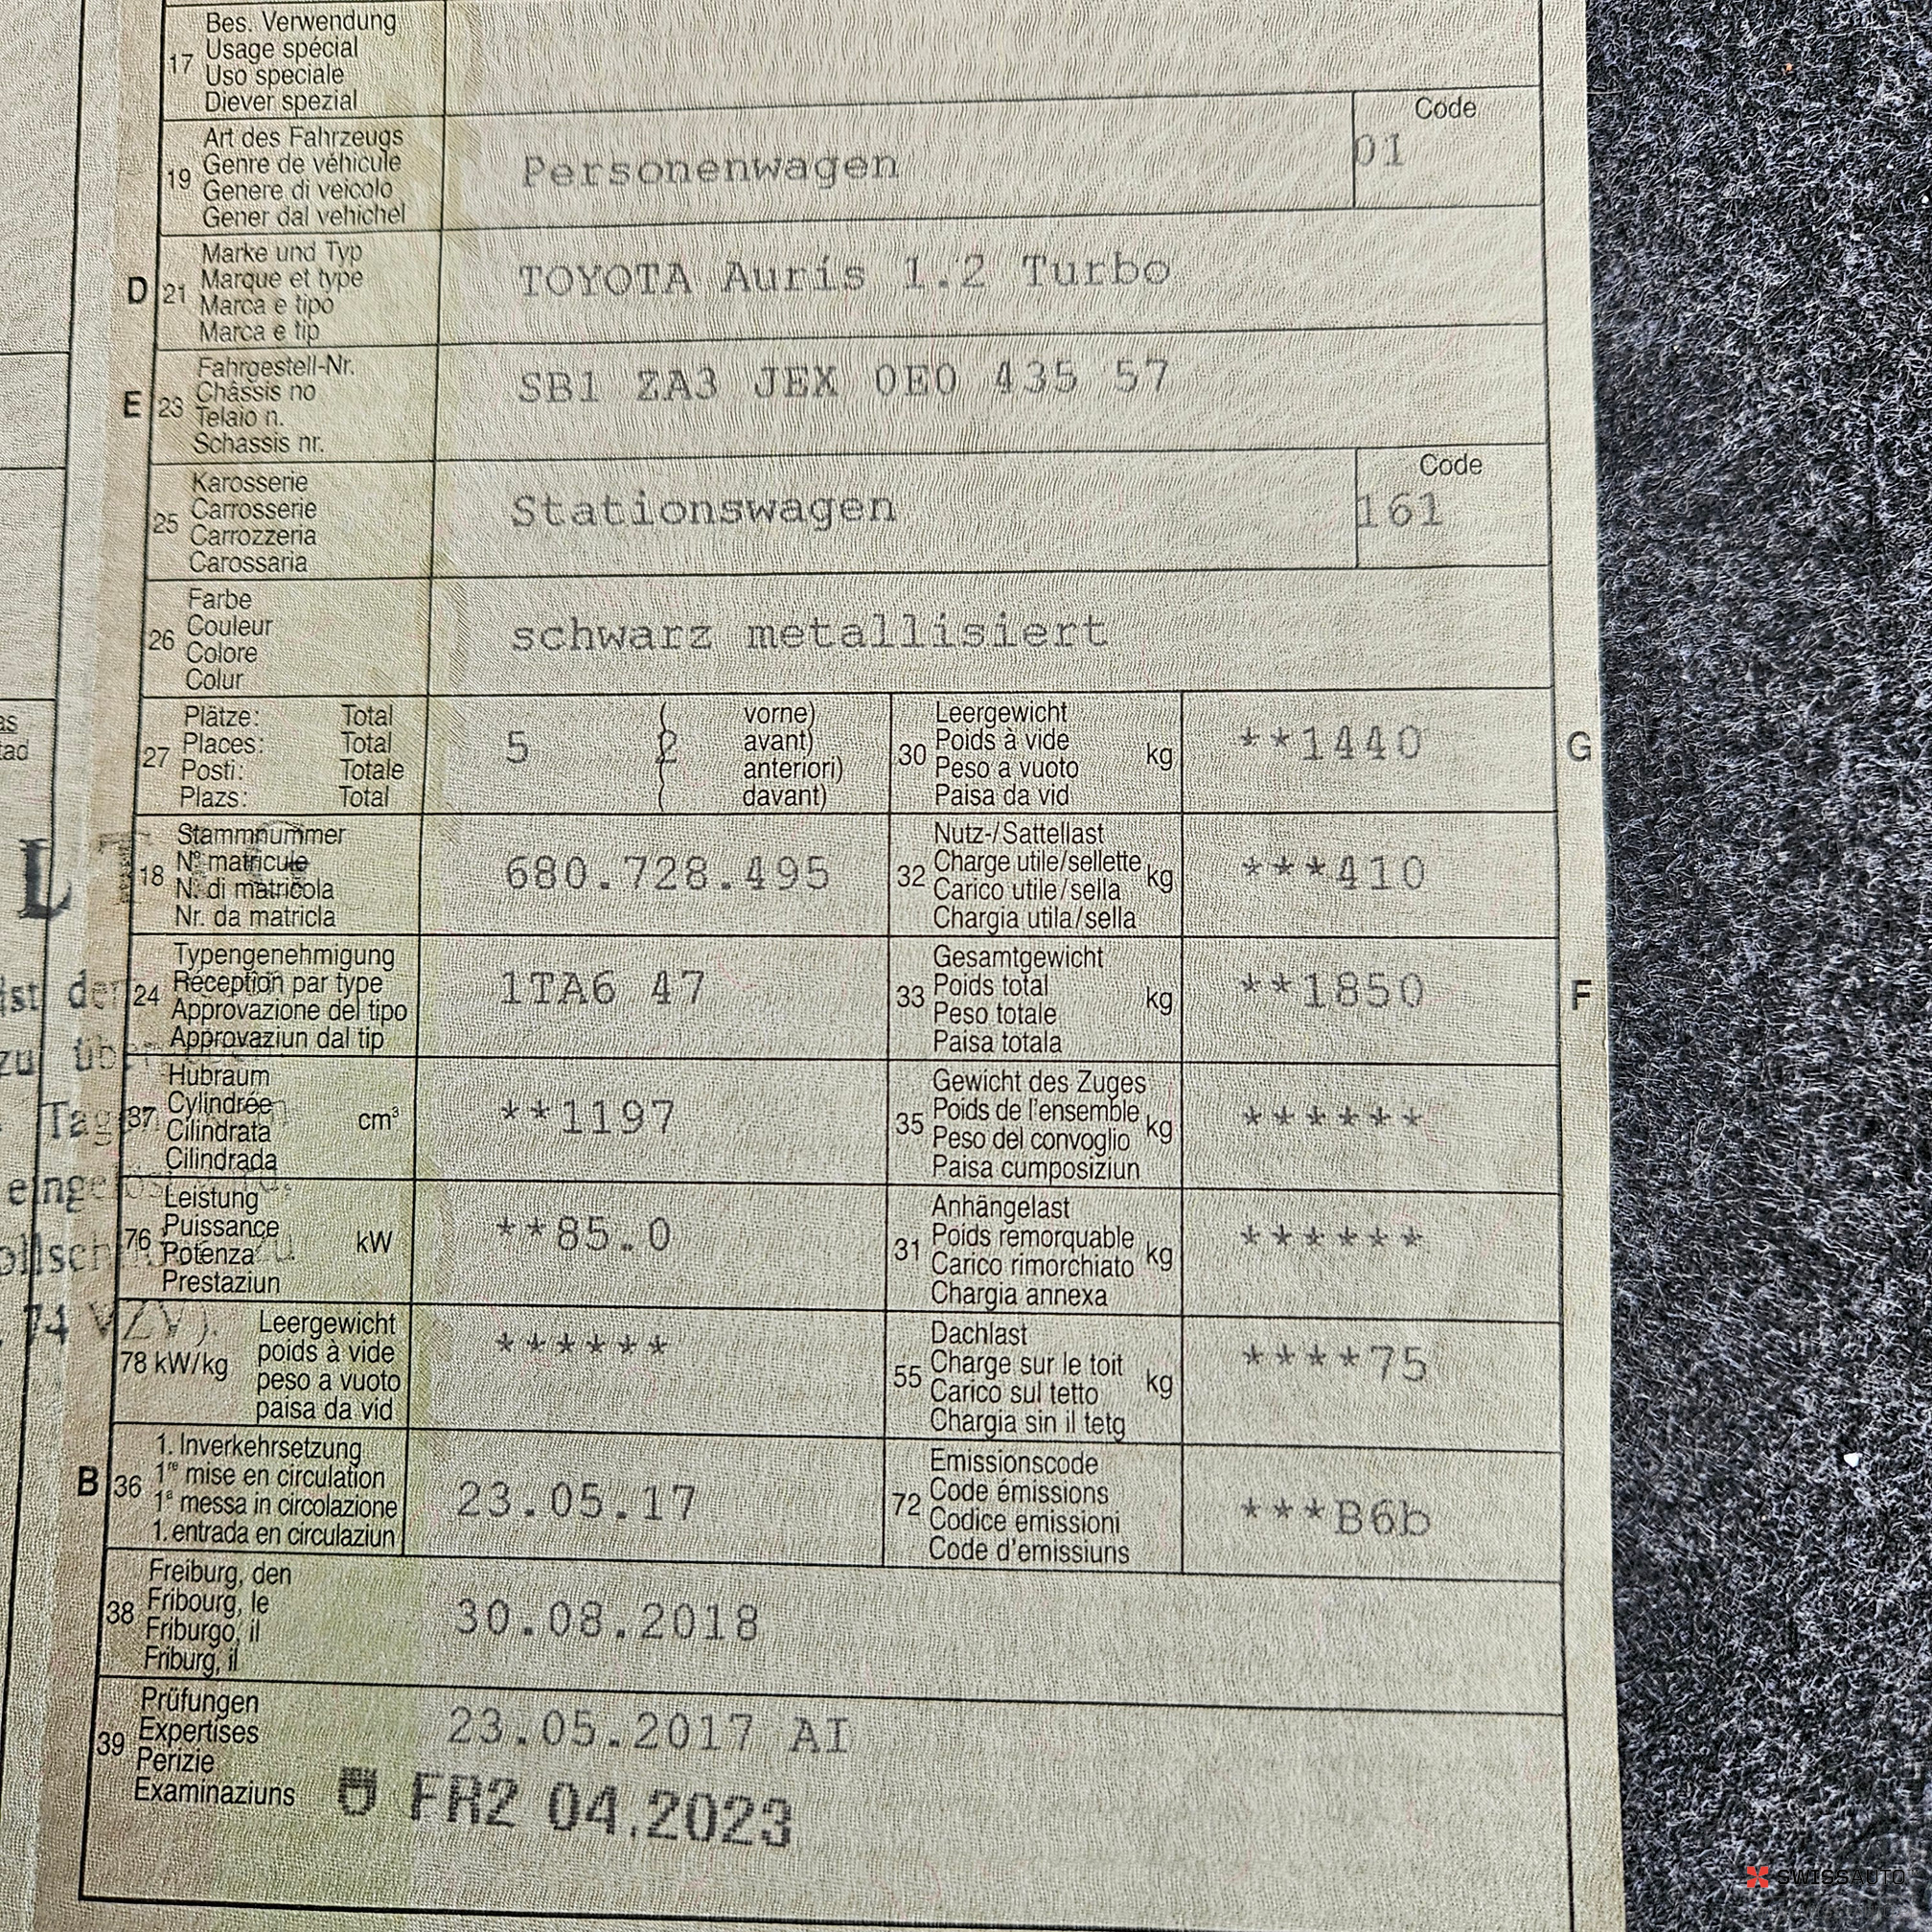 Bes. Verwendung
17 Usage spécial
Uso speciale
Diever spezial
Art des Fahrzeugs
19 Genre de véhicule
Genere di veicolo
Gener dal vehichel
Personenwagen
Code
01
Marke und Typ
D 21 Marque et type
Marca e tipo
Marca e tip
TOYOTA Auris 1.2 Turbo
Fahrgestell-Nr.
E 23 Châssis no
Telaio n.
Schassis nr.
SB1 ZA3 JEX 0E0 435 57
Karosserie
25 Carrosserie
Carrozzeria
Carossaria
Stationswagen
Code
161
Farbe
26 Couleur
Colore
Colur
schwarz metallisiert
Plätze: Total
27 Places: Total
Posti: Totale
Plazs: Total
5 ( 2 vorne)
avant)
anteriori)
davant)
Leergewicht
30 Poids à vide kg
Peso a vuoto
Paisa da vid
**1440 G
Stammnummer
18 N° matricule
N. di matricola
Nr. da matricla
680.728.495
Nutz-/Sattellast
32 Charge utile/sellette kg
Carico utile/sella
Chargia utila/sella
***410
Typengenehmigung
24 Réception par type
Approvazione del tipo
Approvaziun dal tip
1TA6 47
Gesamtgewicht
33 Poids total kg
Peso totale
Paisa totala
**1850 F
Hubraum
37 Cylindrée cm³
Cilindrata
Cilindrada
**1197
Gewicht des Zuges
35 Poids de l'ensemble kg
Peso del convoglio
Paisa cumposiziun
******
Leistung
76 Puissance kW
Potenza
Prestaziun
**85.0
Anhängelast
31 Poids remorquable kg
Carico rimorchiato
Chargia annexa
******
Leergewicht
78 kW/kg poids à vide
peso a vuoto
paisa da vid
******
Dachlast
55 Charge sur le toit kg
Carico sul tetto
Chargia sin il tetg
****75
1. Inverkehrsetzung
B 36 1re mise en circulation
1a messa in circolazione
1. entrada en circulaziun
23.05.17
Emissionscode
72 Code émissions
Codice emissioni
Code d'emissiuns
***B6b
Freiburg, den
38 Fribourg, le
Friburgo, il
Friburg, il
30.08.2018
Prüfungen
39 Expertises
Perizie
Examinaziuns
23.05.2017 AI
FR2 04.2023
SWISSAUTO